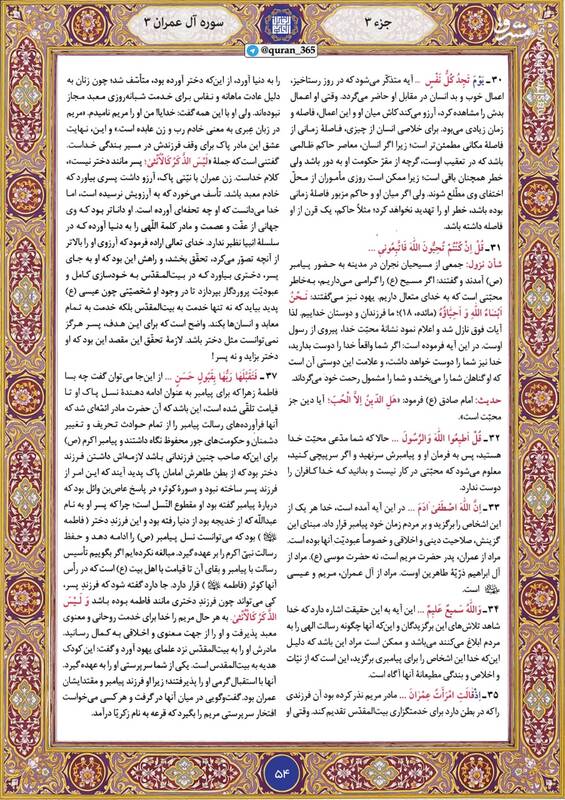 جزء ۳
سوره آل عمران ۳
@quran_365
۳۰ـ یَوْمَ تَجِدُ كُلُّ نَفْسٍ ... آیه متذکّر می‌شود که در روز رستاخیز،
اعمال خوب و بد انسان در مقابل او حاضر می‌گردد. وقتی او اعمال
بدش را مشاهده کرد، آرزو می‌کند کاش میان او و این اعمال، فاصله و
زمان زیادی می‌بود. برای خلاصی انسان از چیزی، فاصلهٔ زمانی از
فاصلهٔ مکانی مطمئن‌تر است؛ زیرا اگر انسان، معاصر حاکم ظالمی
باشد که در تعقیب اوست، گرچه از مقرّ حکومت او به دور باشد ولی
خطر همچنان باقی است؛ زیرا ممکن است روزی مأموران از محلّ
اختفای وی مطّلع شوند. ولی اگر میان او و حاکم مزبور فاصلهٔ زمانی
بوده باشد، خطر او را تهدید نخواهد کرد؛ مثلاً حاکم، یک قرن از او
فاصله داشته باشد.
۳۱ـ قُلْ إِنْ كُنْتُمْ تُحِبُّونَ اللَّهَ فَاتَّبِعُونِي ...
شأن نزول: جمعی از مسیحیان نجران در مدینه به حضور پیامبر
(ص) آمدند و گفتند: اگر مسیح (ع) را گرامی می‌داریم، به‌خاطر
محبّتی است که به خدای متعال داریم. یهود نیز می‌گفتند: نَحْنُ
أَبْنَاءُ اللَّهِ وَ أَحِبَّاؤُهُ (مائده، ۱۸)؛ ما فرزندان و دوستان خداییم. لذا
آیات فوق نازل شد و اعلام نمود نشانهٔ محبّت خدا، پیروی از رسول
اوست. در این آیه فرموده است: اگر شما واقعاً خدا را دوست بدارید،
خدا نیز شما را دوست خواهد داشت، و علامت این دوستی آن است
که او گناهان شما را می‌بخشد و شما را مشمول رحمت خود می‌گرداند.
حدیث: امام صادق (ع) فرمود: «هَلِ الدّینُ إِلاَّ الْحُبّ؛ آیا دین جز
محبّت است».
۳۲ـ قُلْ أَطِيعُوا اللَّهَ وَالرَّسُولَ ... حالا که شما مدّعی محبّت خدا
هستید، پس به فرمان او و پیامبرش سر نهید و اگر سرپیچی کنید،
معلوم می‌شود که محبّتی در کار نیست و بدانید که خدا کافران را
دوست ندارد.
۳۳ـ إِنَّ اللَّهَ اصْطَفَىٰ آدَمَ ... در این آیه آمده است، خدا هر یک از
این اشخاص را برگزید و بر مردم زمان خود پیامبر قرار داد. مبنای این
گزینش، صلاحیت دینی و اخلاقی و خصوصاً عبودیّت آنها بوده است.
مراد از عمران، پدر حضرت مریم است، نه حضرت موسی (ع). مراد از
آل ابراهیم ذرّیّهٔ طاهرین اوست. مراد از آل عمران، مریم و عیسی
است.
۳۴ـ وَاللَّهُ سَمِيعٌ عَلِيمٌ ... این آیه به این حقیقت اشاره دارد که خدا
شاهد تلاش‌های این برگزیدگان و این‌که آنها چگونه رسالت الهی را به
مردم ابلاغ می‌کنند می‌باشد و ممکن است مراد این باشد که دلیل
این‌که خدا این اشخاص را برای پیامبری برگزید، این است که از نیّات
و اخلاص و بندگی مطیعانهٔ آنها آگاه است.
۳۵ـ إِذْ قَالَتِ امْرَأَتُ عِمْرَانَ ... مادر مریم نذر کرده بود آن فرزندی
را که در بطن دارد برای خدمتگزاری بیت‌المقدّس تقدیم کند. وقتی او
را به دنیا آورد، از این‌که دختر آورده بود، متأسّف شد؛ چون زنان به
دلیل عادت ماهانه و نفاس برای خدمت شبانه‌روزی معبد مجاز
نبوده‌اند. ولی او با این همه گفت: خدایا! من او را مریم نامیدم. «مریم
در زبان عِبری به معنی خادم رب و زن عابده است» و این، نهایت
عشق این مادر پاک برای وقف فرزندش در مسیر بندگی خداست.
گفتنی است که جملهٔ «لَيْسَ الذَّكَرُ كَالْأُنْثَىٰ؛ پسر مانند دختر نیست»،
کلام خداست. زن عمران با نیّتی پاک، آرزو داشت پسری بیاورد که
خادم معبد باشد. تأسف می‌خورد که به آرزویش نرسیده است، اما
خدا می‌دانست که او چه تحفه‌ای آورده است. او داناتر بود که وی
جهانی از عفّت و عصمت و مادر کلمة اللّهی را به دنیا آورده که در
سلسلهٔ انبیا نظیر ندارد. خدای تعالی اراده فرمود که آرزوی او را بالاتر
از آنچه تصوّر می‌کرد، تحقّق بخشد، و راهش این بود که او به جای
پسر، دختری بیاورد که در بیت‌المقدّس به خودسازی کامل و
عبودیّت پروردگار بپردازد تا در وجود او شخصیّتی چون عیسی (ع)
پدید بیاید که نه تنها خدمت به بیت‌المقدّس بلکه خدمت به تمام
معابد و انسان‌ها بکند. واضح است که برای این هدف، پسر هرگز
نمی‌توانست مثل دختر باشد. لازمهٔ تحقّق این مقصد این بود که او
دختر بزاید و نه پسر!
۳۷ـ فَتَقَبَّلَهَا رَبُّهَا بِقَبُولٍ حَسَنٍ ... از این‌جا می‌توان گفت چه بسا
فاطمهٔ زهرا که برای پیامبر به عنوان ادامه دهندهٔ نسل پاک او تا
قیامت تلقّی شده است، این باشد که آن حضرت مادر ائمّه‌ای شد که
آنها فرآورده‌های رسالت پیامبر را از تمام حوادث تحریف و تغییر
دشمنان و حکومت‌های جور محفوظ نگاه داشتند و پیامبر اکرم (ص)
برای این‌که صاحب چنین فرزندانی باشد لازمه‌اش داشتن فرزند
دختر بود که از بطن طاهرش امامان پاک پدید آیند که این امر از
فرزند پسر ساخته نبود و «سورهٔ کوثر» در پاسخ عاص‌بن وائل بود که
دربارهٔ پیامبر گفته بود او مقطوع النّسل است؛ چرا که پسر او به نام
عبداللّه که از خدیجه بود از دنیا رفته بود و این فرزند دختر (فاطمه
) بود که می‌توانست نسل پیامبر (ص) را ادامه دهد و حفظ
رسالت نبیّ اکرم را بر عهده گیرد. مبالغه نکرده‌ایم اگر بگوییم تأسیس
رسالت با پیامبر و بقای آن تا قیامت با اهل بیت (ع) است که در رأس
آنها کوثر (فاطمه ) قرار دارد. جا دارد گفته شود که فرزندِ پسر،
کی می‌تواند چون فرزندِ دختری مانند فاطمه بوده باشد وَ لَيْسَ
الذَّكَرُ كَالْأُنْثَىٰ. به هر حال مریم را خدا برای خدمت روحانی و معنوی
معبد پذیرفت و او را از جهت معنوی و اخلاقی به کمال رسانید.
مادرش او را به بیت‌المقدّس نزد علمای یهود آورد و گفت: این کودک
هدیه به بیت‌المقدس است. یکی از شما سرپرستی او را به عهده گیرد.
آنها با استقبال گرمی او را پذیرفتند؛ زیرا او فرزند پیامبر و مقتدایشان
عمران بود. گفت‌وگویی در میان آنها در گرفت و هر کسی می‌خواست
افتخار سرپرستی مریم را بگیرد که قرعه به نام زکریّا درآمد.
۵۴